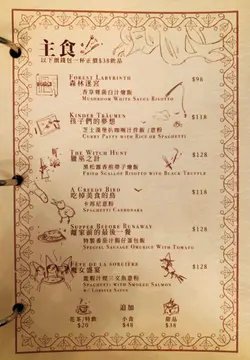 主食
以下價錢包一杯正價$38飲品
Forest Labyrinth
森林迷宮 $98
香草雜菌白汁燴飯
Mushroom White Sauce Risotto
Kinder Träumen
孩子們的夢想 $118
芝士漢堡扒咖喱汁炸飯/意粉
Curry Patty with Rice or Spaghetti
The Witch Hunt
獵巫之計 $128
黑松露香煎帶子燴飯
Fried Scallop Risotto with Black Truffle
A Greedy Bird
吃掉美食的鳥 $118
卡邦尼意粉
Spaghetti Carbonara
Supper Before Runaway
離家前的最後一餐 $128
特製蕃茄汁腸仔蛋包飯
Special Sausage Omurice with Tomato
Fête de la sorcière
魔女盛宴 $128
龍蝦汁煙三文魚意粉
Spaghetti with Smoked Salmon
w/ Lobster Sauce
追加
花茶/特飲 小食 甜品
$20 $48 $38